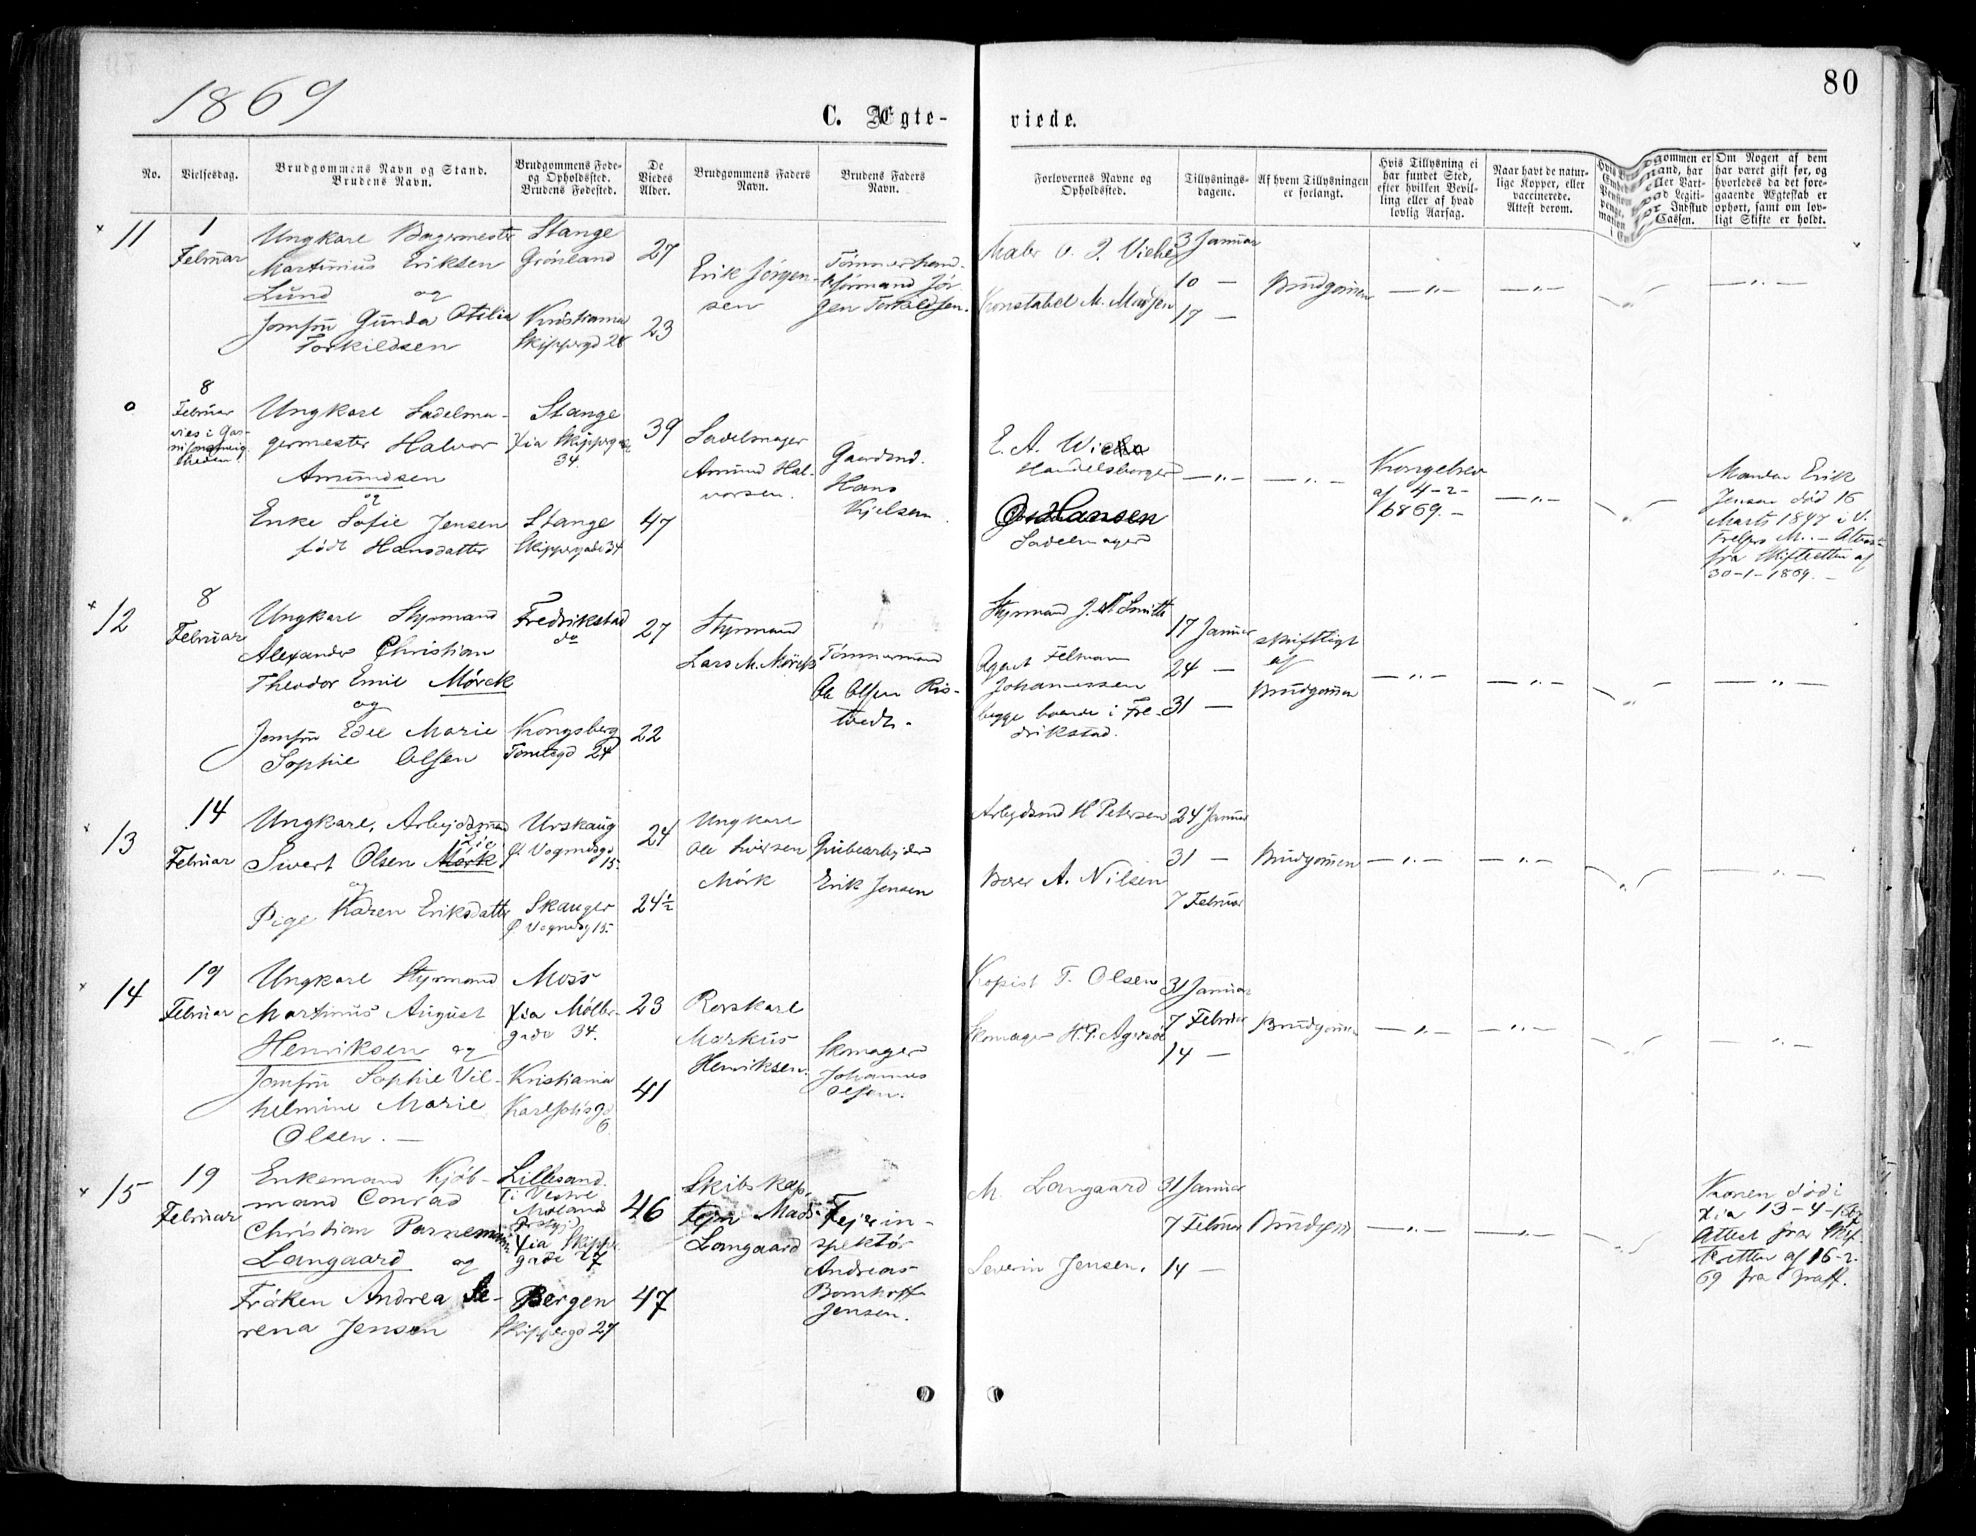 1869
80
C. Ægte-
viede.
No.
Vielsesdag.
Brudgommens Navn og Stand.
Brudens Navn.
Brudgommens Føde-
og Opholdssted.
Brudens Fødested.
De
Viedes
Alder.
Brudgommens Faders
Navn.
Brudens Faders
Navn.
Forlovernes Navne og
Opholdssted.
Tillysnings-
dagene.
Af hvem Tillysningen
er forlangt.
Hvis Tillysning ei
har fundet Sted,
efter hvilken Bevil-
ling eller af hvad
lovlig Aarsag.
Naar havt de natur-
lige Kopper, eller
vaccinerede.
Attest derom.
Om Nogen af dem
har været gift før, og
hvorledes da det fore-
gaaende Ægteskab er
ophørt, samt om lov-
ligt Skifte er holdt.
11
1
Februar
Ungkarl Bagermester
Martinius Eriksen
Lund
og
Jomfru Gunda Otilia
Torkildsen
Stange
Grønland
Kristiania
Skippergd 28
27
23
Erik Jørgen-
sen
Jør
gen Torkildsen.
Maler
Konstabel M. Madsen
3 Januar
10 —
17 —
Brudgommen
8
Februar
Ungkarl Sadelma-
germester Halvor
Amundsen
og
Enke Sofie Jensen
født Hansdatter
Stange
34.
Stange
Skippergade 34
39
47
Sadelmager
Amund Hal-
vorsen.
Gaardmd.
Hans
Kjelsen.
E. A.
Handelsborger
Hansen
Sadelmager
Kongebrev
af 4-2-
1869. -
Manden Erik
Jensen død 16
Marts 1847 i
fra Skifteretten af
30-1-1869. -
12
8
Februar
Ungkarl Styrmand
Alexander Christian
Theodor Emil Mørck
og
Jomfru Edle Marie
Sophie Olsen
Fredrikstad
do
Kongsberg
24
27
22
Styrmand
Lars M. Mørck
Tømmermand
Ole Olsen Ris-
Styrmand J. Smith
Johannessen
begge boende i Fre-
drikstad.
17 Januar
24 —
31 —
skriftligt
af
Brudgommen
13
14
Februar
Ungkarl, Arbejdsmand
Sivert Olsen Mørk
og
Pige Karen Eriksdatter
Urskaug
Ø. Vognmdsgd
15.
Skauger
Ø Vognmdsg 15.
24
24½
Ungkarl
Ole Sivertsen
Mørk
Grubearbejder
Erik Jensen
Arbejdsmd H Petersen
A. Nilsen
24 Januar
31 —
7 Februar
Brudgommen
14
19
Februar
Ungkarl Styrmand
Martinus August
Henriksen og
Jomfru Sophie Vil-
helmine Marie
Olsen. —
Moss
Xia Møller-
gade 34.
Kristiania
Karl Johs gd
6
23
41
Rorskarl
Markus
Henriksen.
Skomager
Johannes
Olsen.
Kopist T. Olsen
Skomager
31 Januar
7 Februar
14 —
Brudgommen
15
19
Februar
Enkemand Kjøb-
mand Conrad
Christian
Langaard og
Frøken Andrea Se-
rena Jensen
Lillesand
i Vestre
Moland
Prstgj
Xia Skipper
gade 27
Bergen
Skippergd 27
46
47
Skibskap-
tejn Mads
Langaard
Fejerin-
spektør
Andreas
Bornhoff
Jensen.
M. Langaard
Severin Jensen.
31 Januar
7 Februar
14 —
Brudgom
Konen død i
Xia 13-4-
Attest fra Skif-
teretten af 16-2-
69